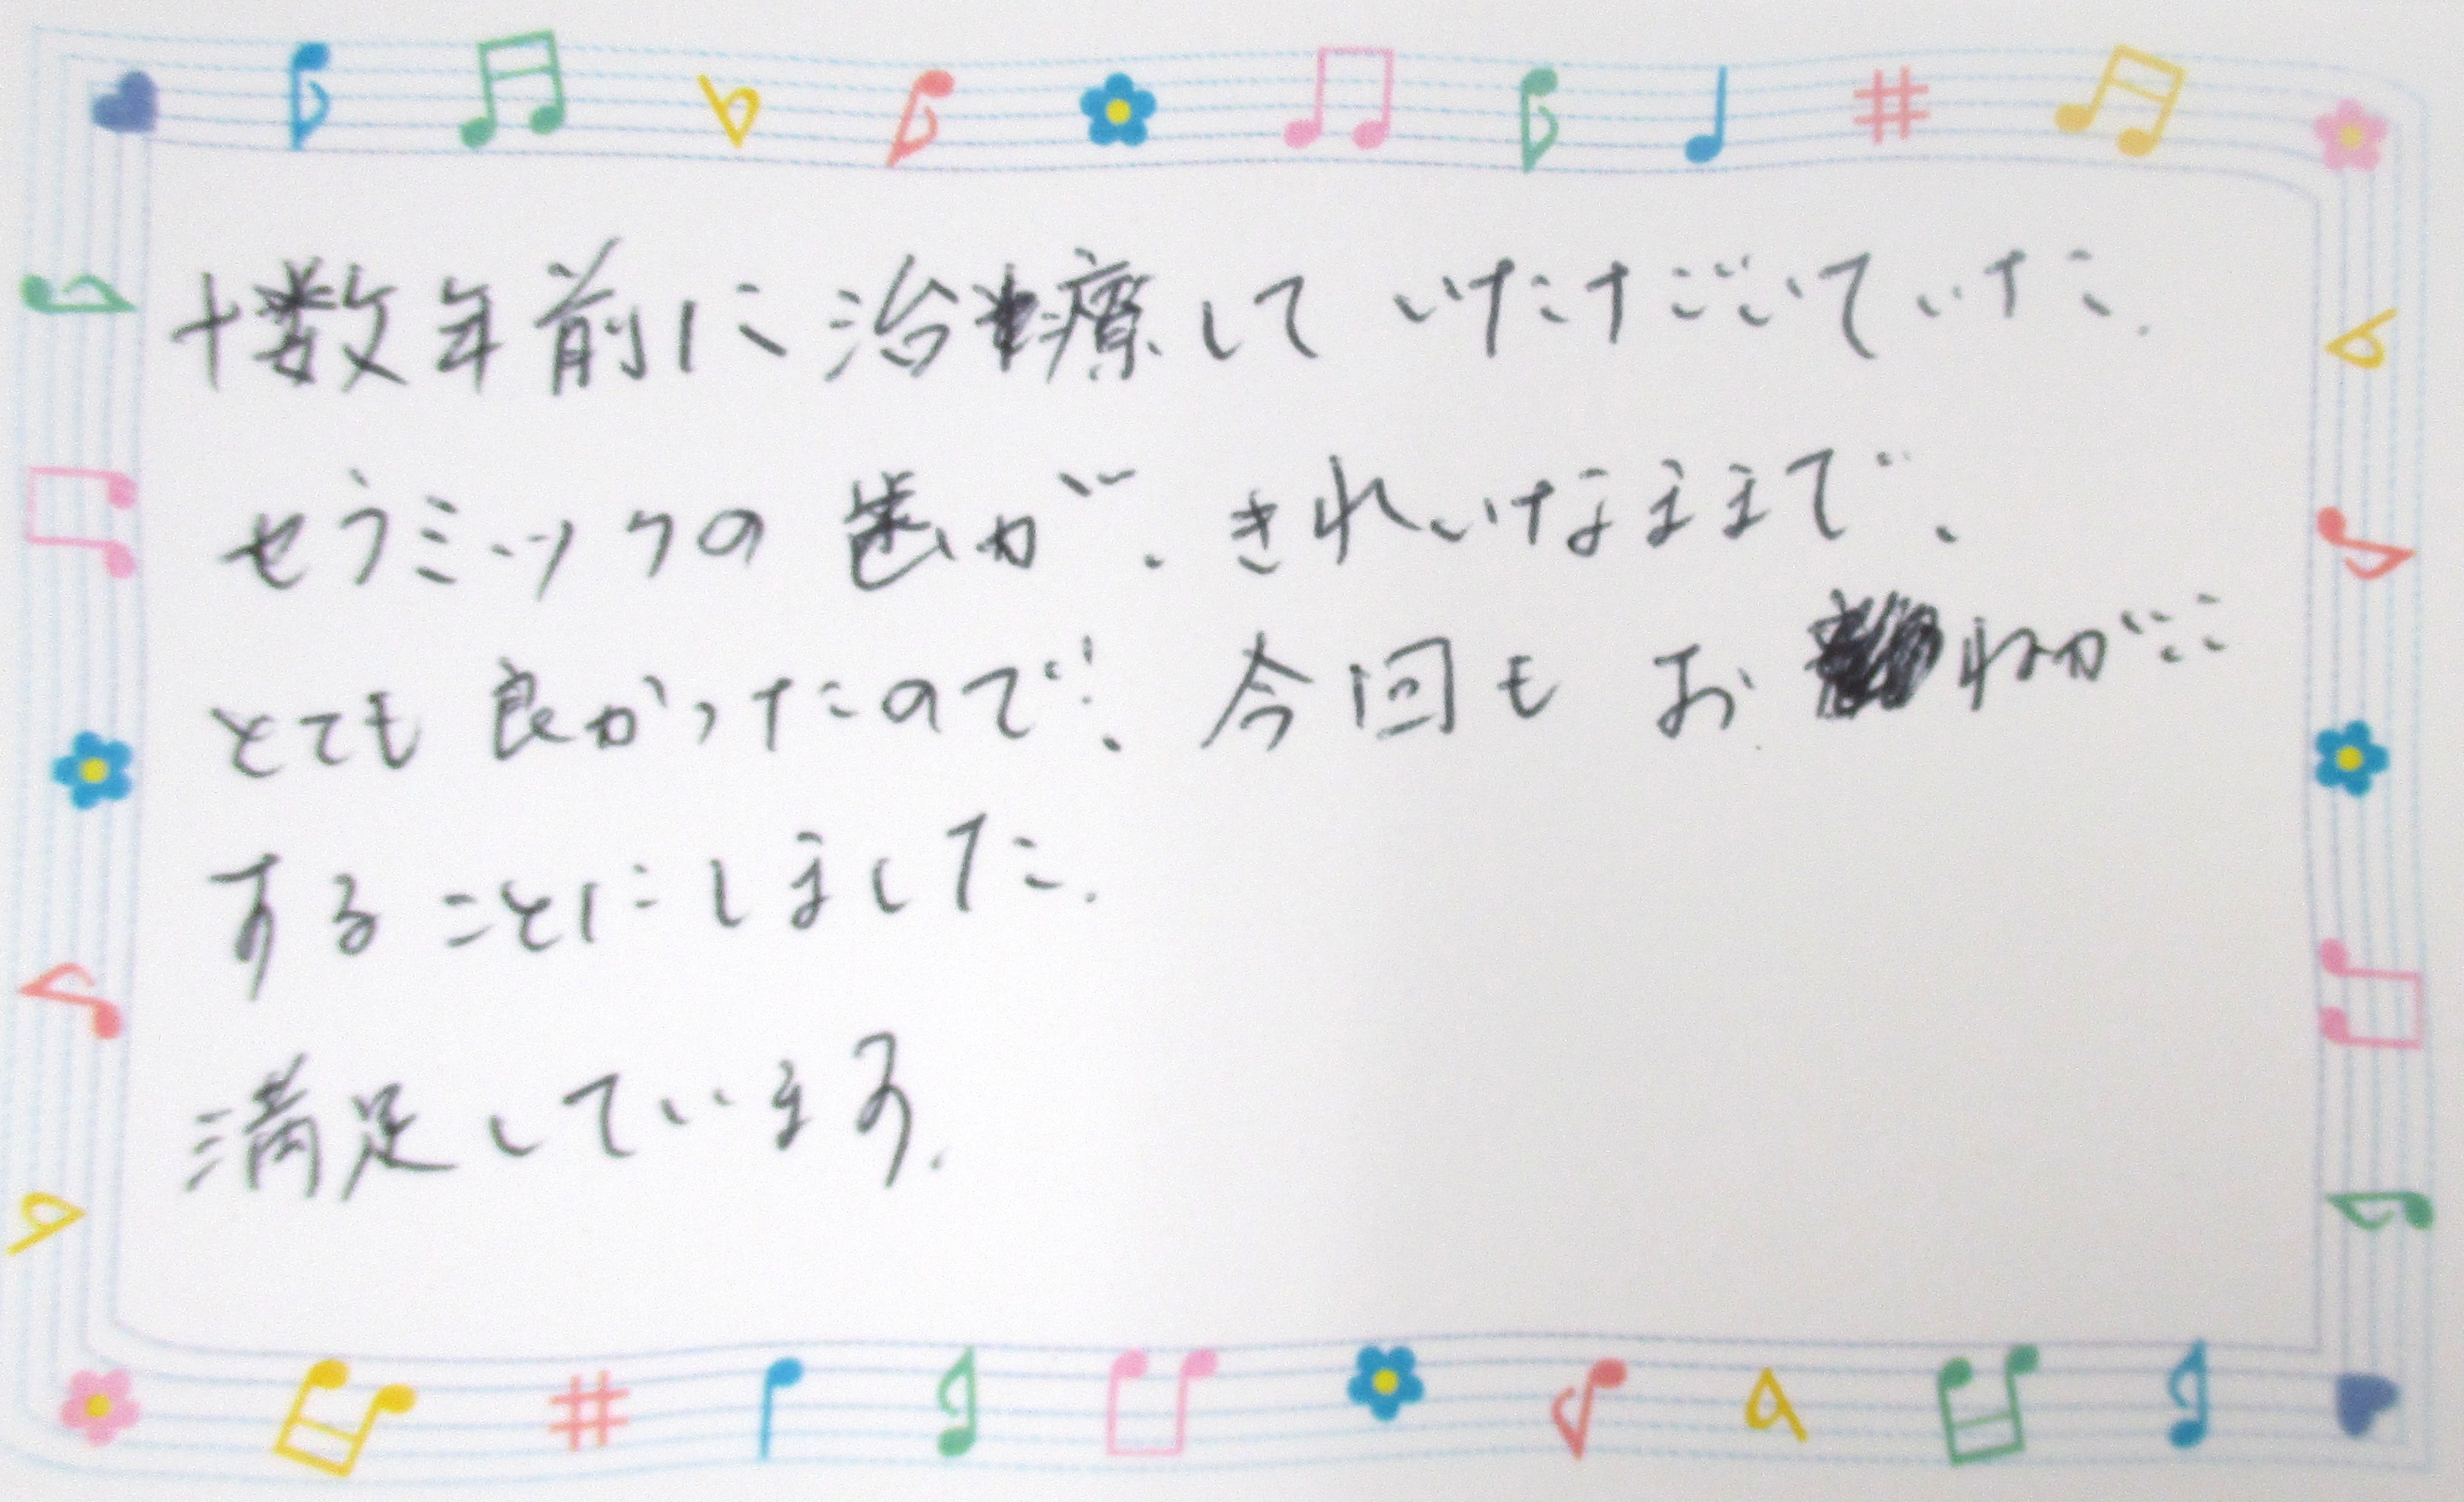 十数年前に治療していただいていた.
セラミックの歯が、きれいなままで、
とても良かったので、今回もおねがい
することにしました.
満足しています.